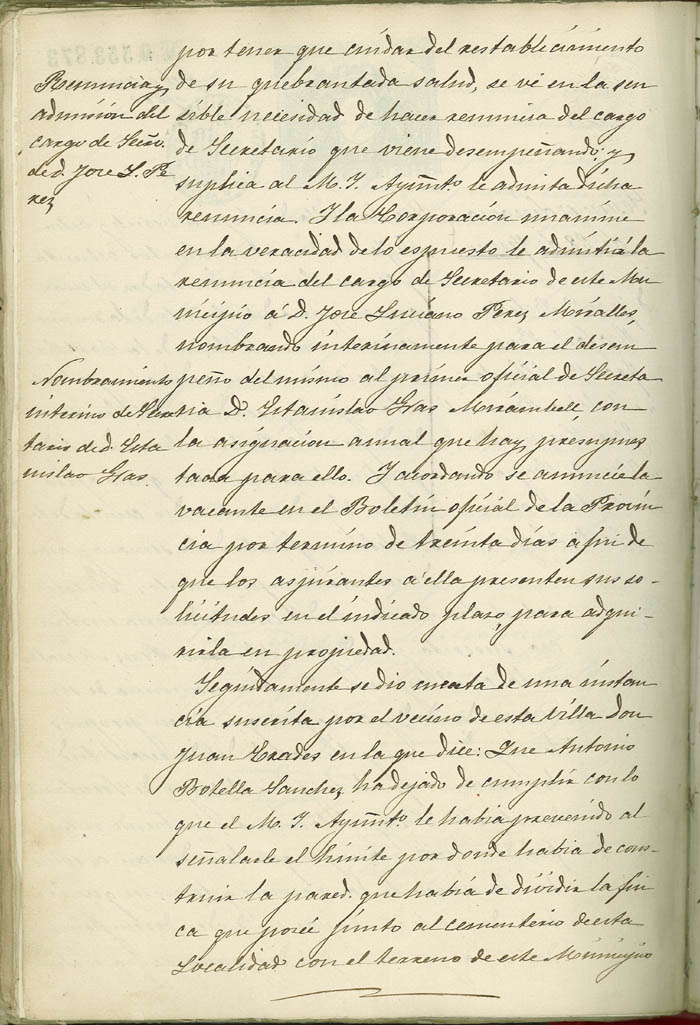 por tener que cuidar del restablecimiento
de su quebrantada salud, se vé en la sen
sible necesidad de hacer renuncia del cargo
de Secretario que viene desempeñando; y
suplica al M. I. Ayunto. le admita dicha
renuncia. I la Corporación unanime
en la veracidad de lo espuesto le admitirá la
renuncia del cargo de Secretario de este Mu
nicipio á D. José Luciano Perez Miralles,
nombrando interinamente para el desem
peño del mismo al primer oficial de Secreta
ria D. Estanislao Gras Mirambell, con
la asignación annual que hay presupues
tada para ello. I acordando se anuncie la
vacante en el Boletín oficial de la Provin
cia por termino de treinta días á fin de
que los aspirantes á ella presenten sus so-
licitudes en el indicado plazo, para adqui-
rirla en propiedad.
Seguidamente se dio cuenta de una instan
cia suscrita por el vecino de esta Villa Don
Juan Erades en la que dice: Que Antonio
Botella Sanchez, ha dejado de cumplir con lo
que el M. I. Ayunto. le habia prevenido al
señalarle el límite por donde habia de cons-
truir la pared que había de dividir la fin
ca que poseé junto al cementerio de esta
Localidad con el terreno de este Municipio
Renuncia y
admisión del
cargo de Seño.
de d. Jose L. Pe
rez
Nombramiento
interino de Secre
tario de d. Esta
nislao Gras.